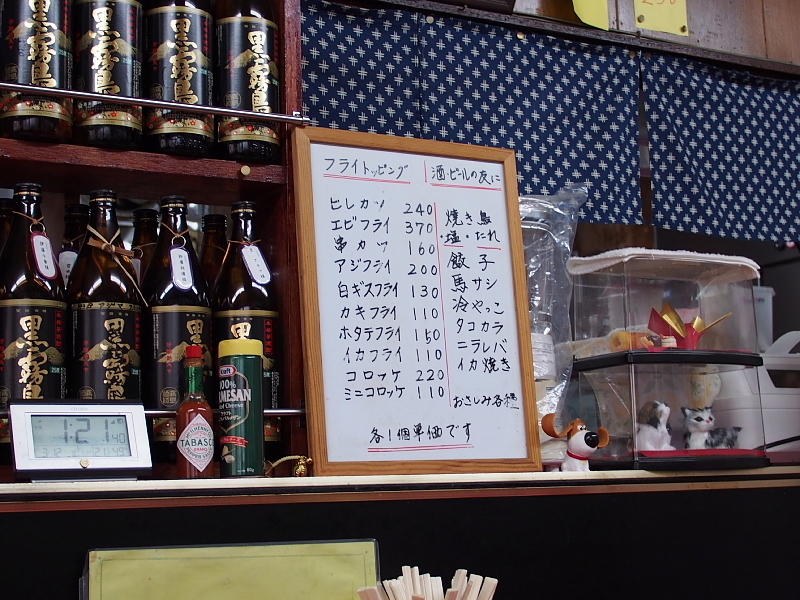 黒霧島
黒霧島
黒霧島
黒霧島
フライトッピング
ヒレカツ 240
エビフライ 370
串カツ 160
アジフライ 200
白ギスフライ 130
カキフライ 110
ホタテフライ 150
イカフライ 110
コロッケ 220
ミニコロッケ 110
各1個単価です
酒・ビールの友に
焼き鳥
・塩・たれ
餃子
馬サシ
冷やっこ
タコカラ
ニラレバ
イカ焼き
おさしみ各種
黒霧島
黒霧島
黒霧島
1:21
TABASCO
Kraft
100%
PARMESAN